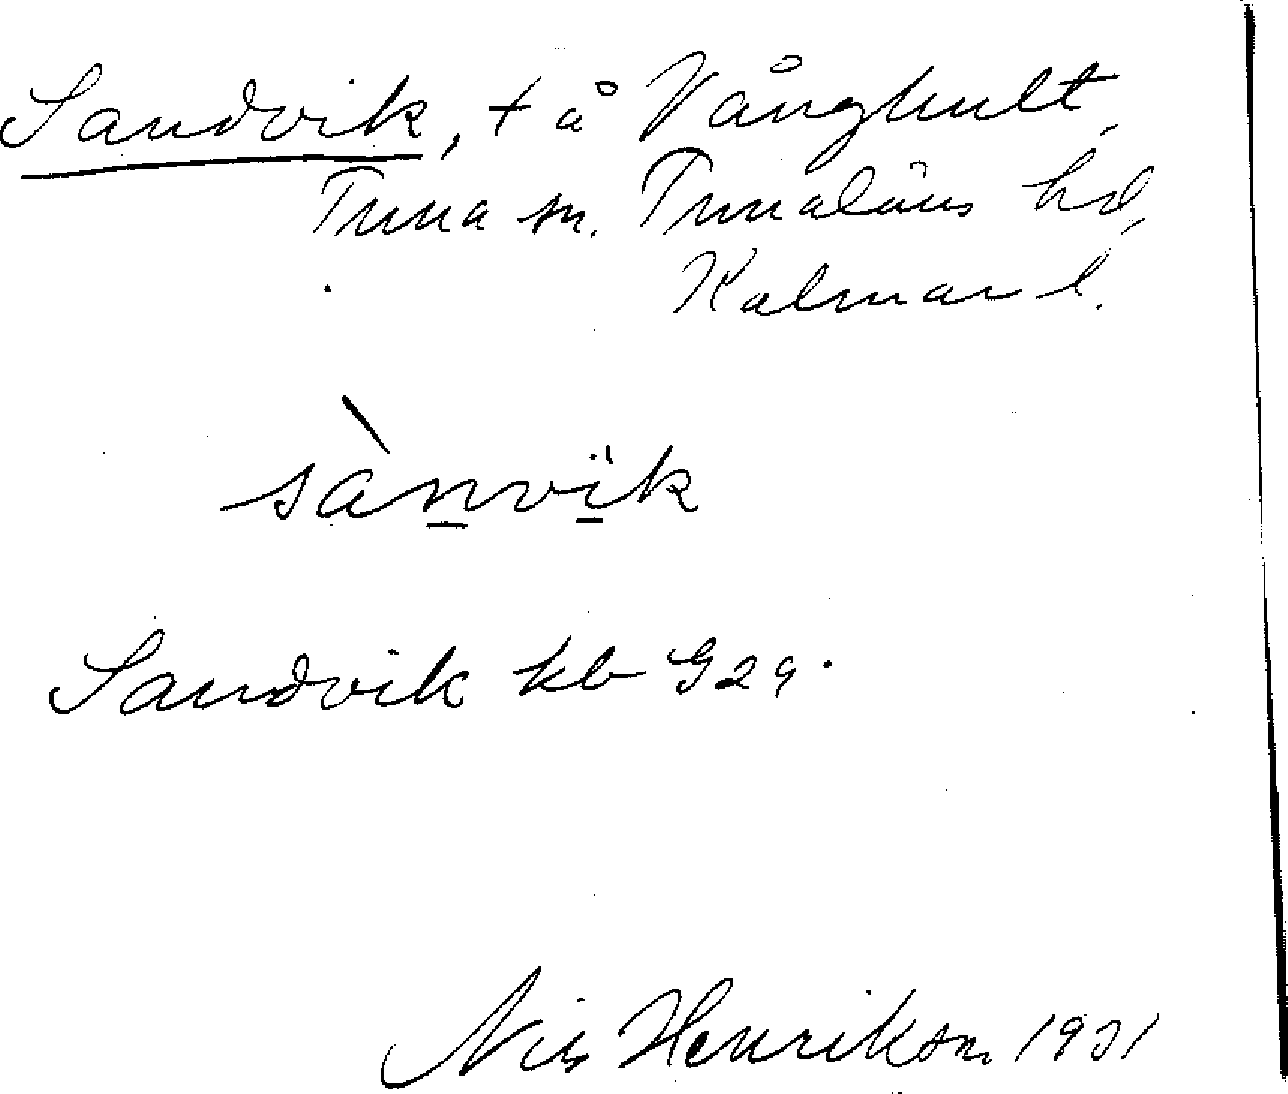 Sandvik, t å Vånghult,
Tuna sn. Tunaläns hd,
Kalmar l.
sànvik
Sandvik kb G29.
Nils Henriksson 1931